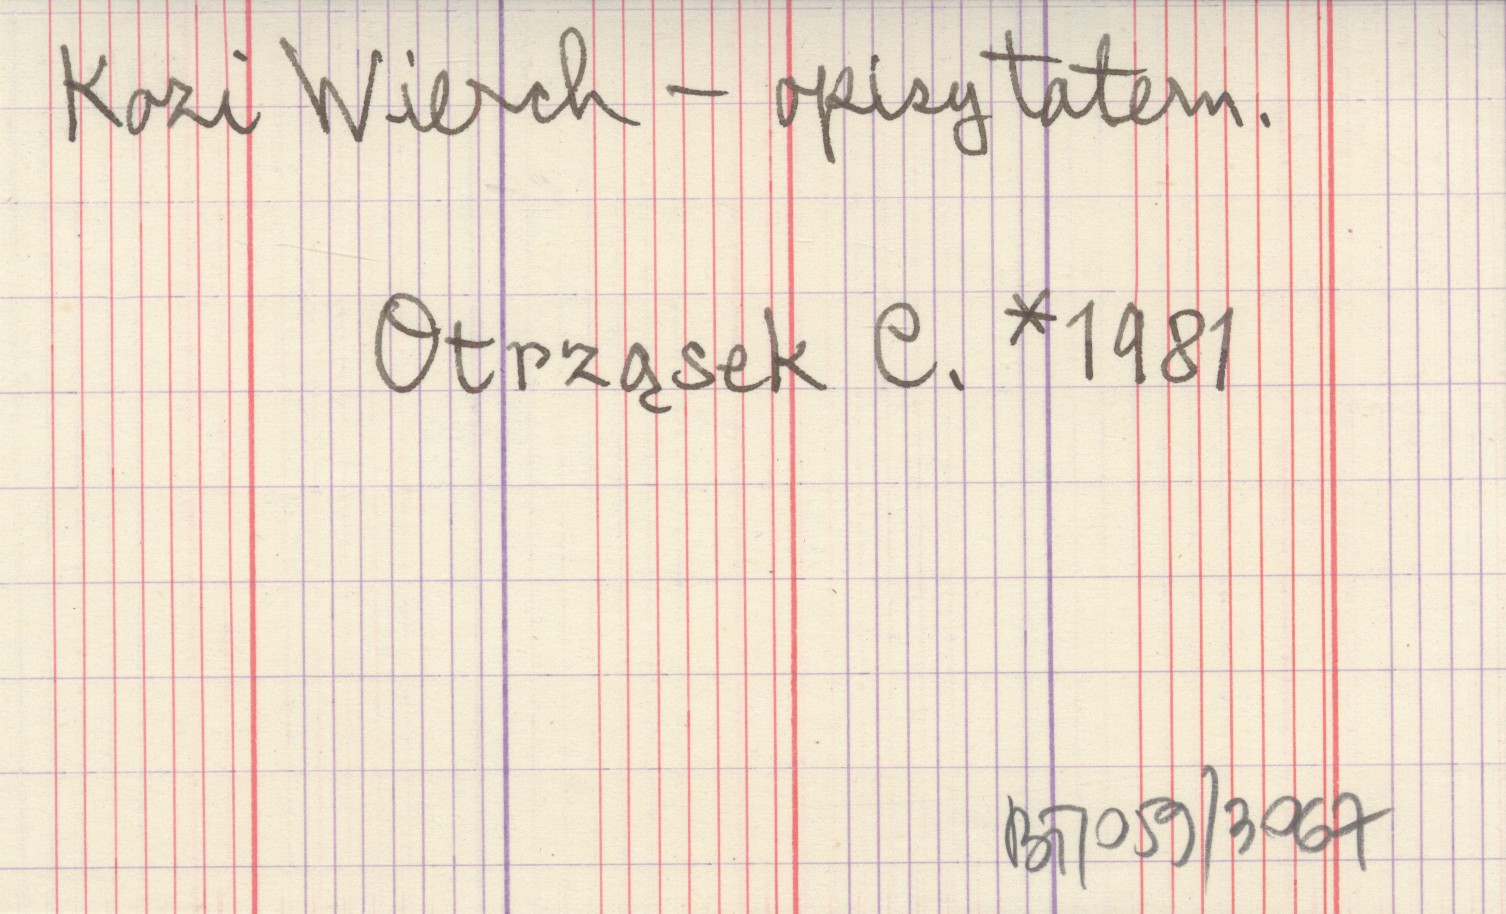 Kozi Wierch - opisy tatern.
Otrząsek C. *1981
BT/059/3067